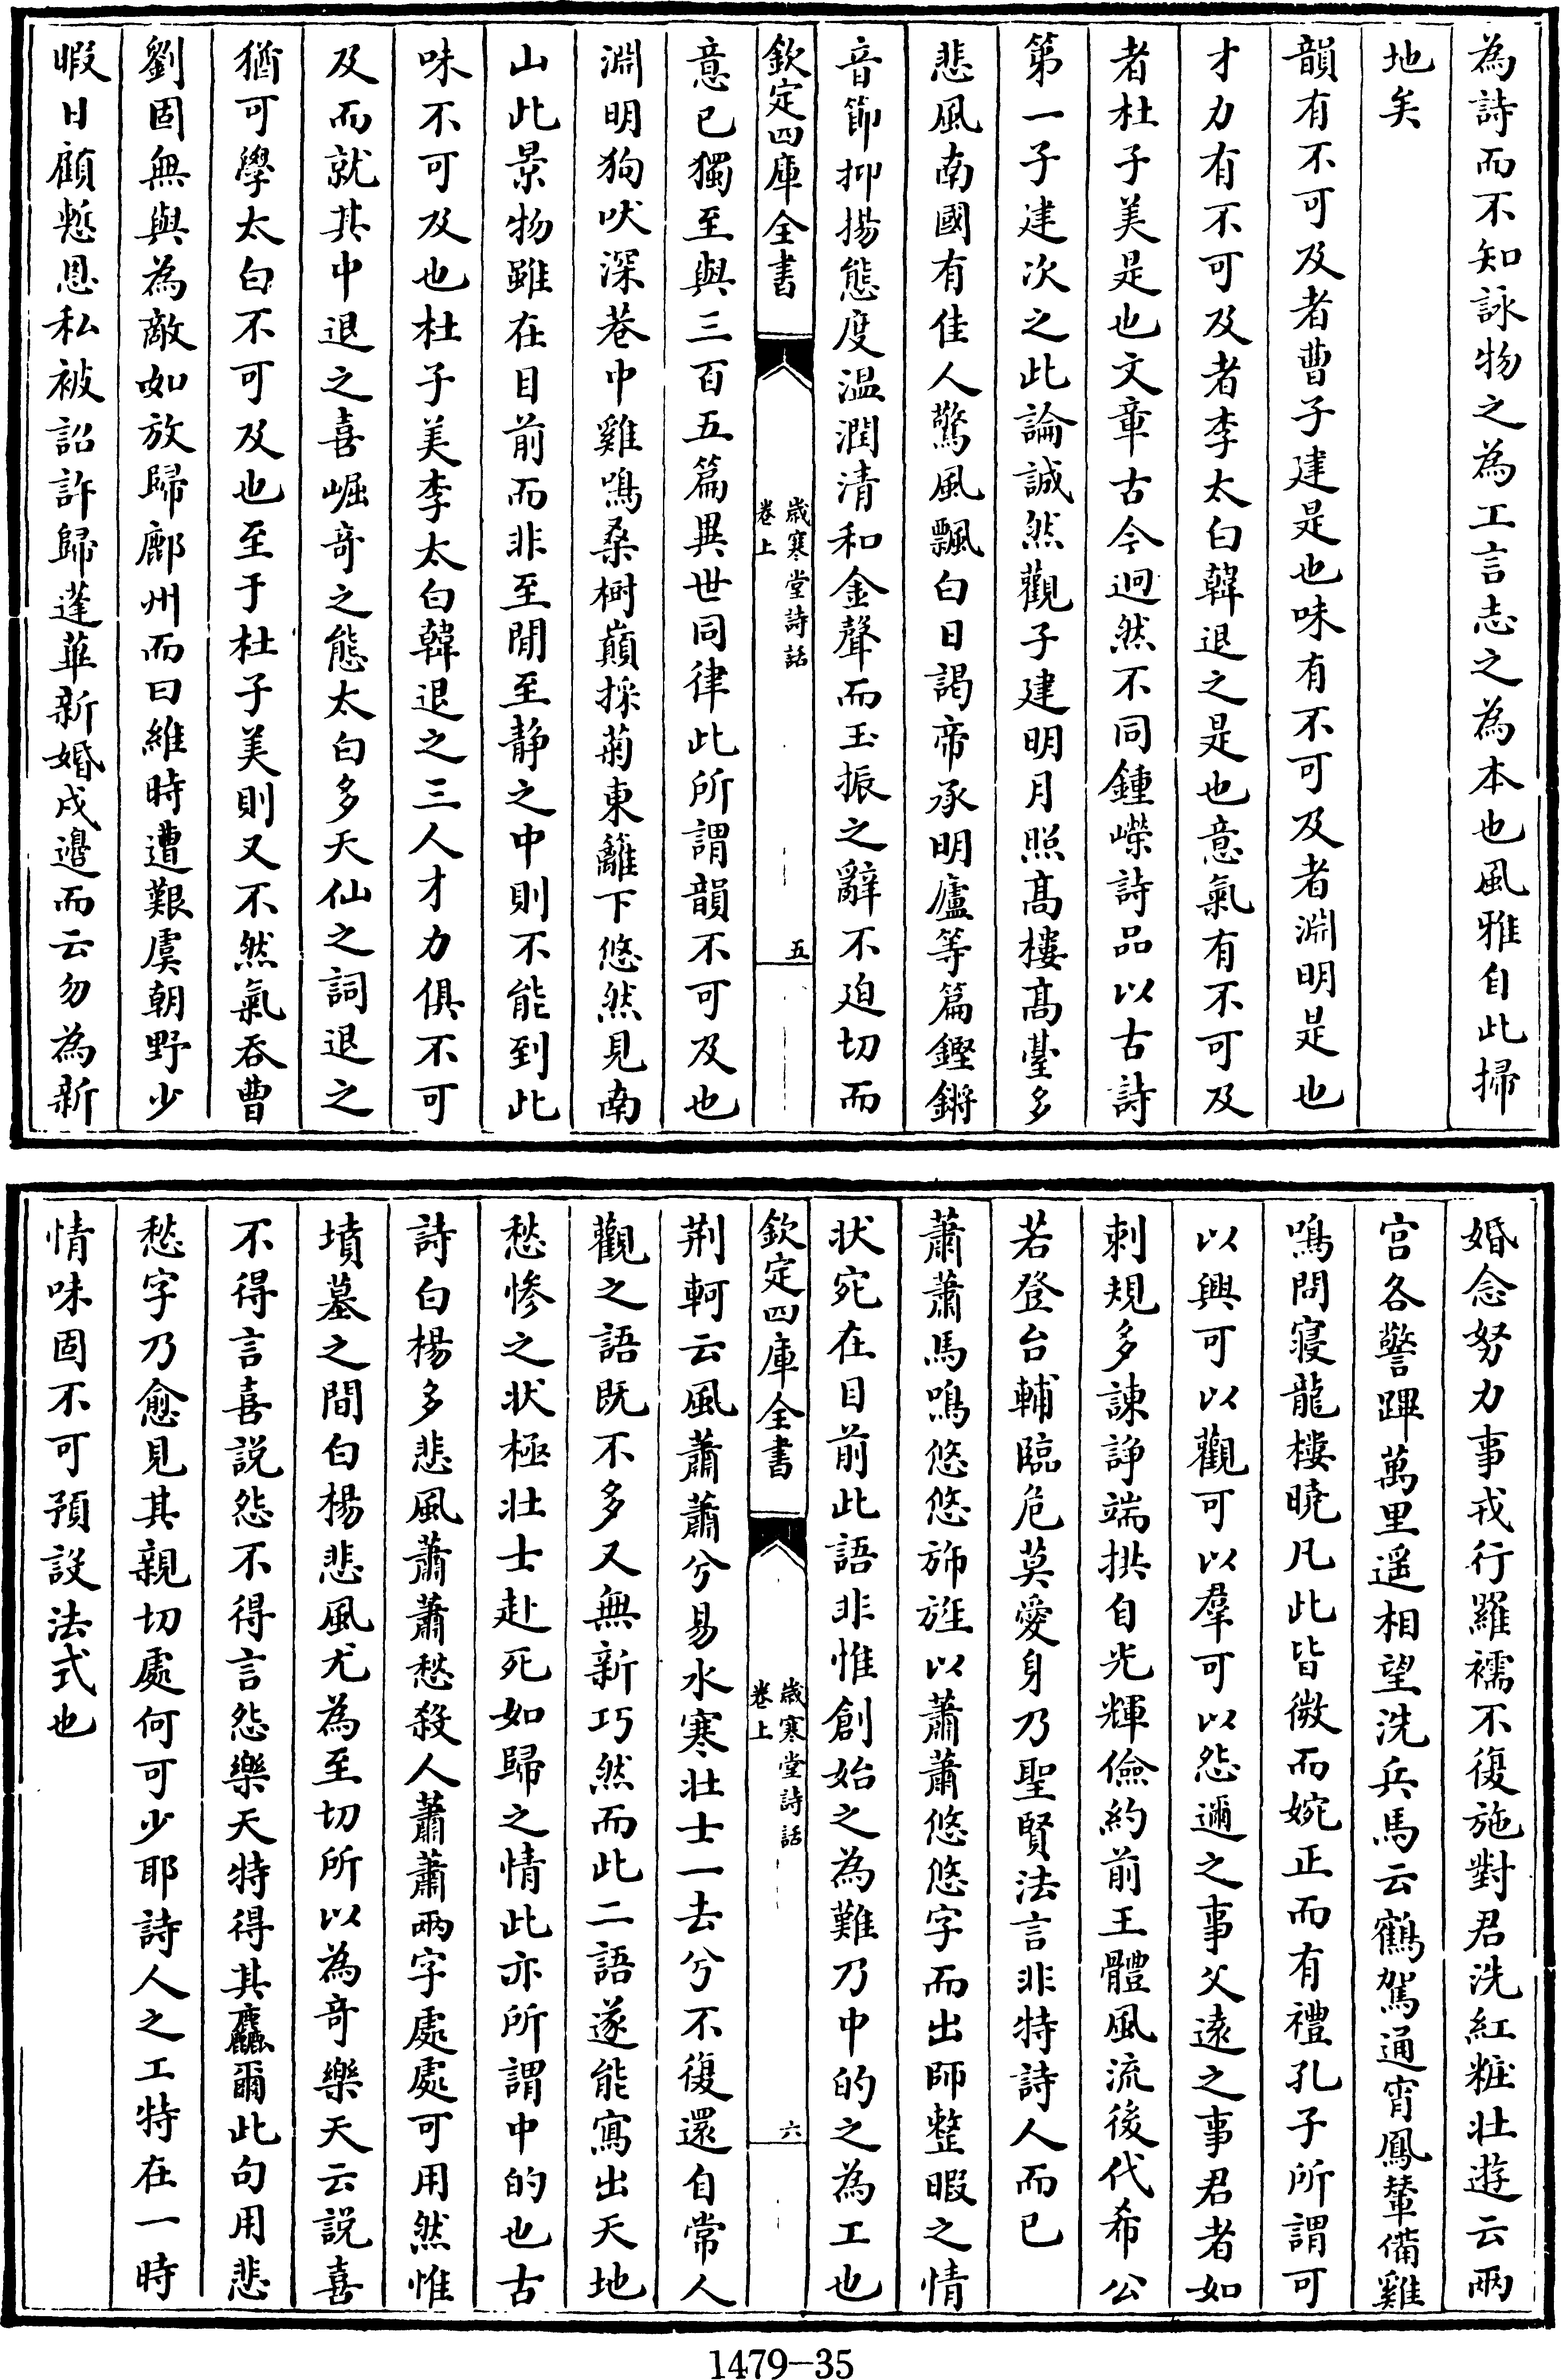 為詩而不知詠物之為工言志之為本也風雅自此掃
地矣
韻有不可及者曹子建是也味有不可及者淵明是也
才力有不可及者李太白韓退之是也意氣有不可及
者杜子美是也文章古今迥然不同鍾嶸詩品以古詩
第一子建次之此論誠然觀子建明月照髙樓髙臺多
悲風南國有佳人驚風飄白日謁帝承明廬等篇鏗鏘
音節抑揚態度温潤清和金聲而玉振之辭不迫切而
欽定四庫全書
歳寒堂詩話
卷上
五
意已獨至與三百五篇異世同律此所謂韻不可及也
淵明狗吠深巷中雞鳴桑樹巔採菊東籬下悠然見南
山此景物雖在目前而非至閒至静之中則不能到此
味不可及也杜子美李太白韓退之三人才力俱不可
及而就其中退之喜崛奇之態太白多天仙之詞退之
猶可學太白不可及也至于杜子美則又不然氣吞曹
劉固無與為敵如放歸鄜州而曰維時遭艱虞朝野少
暇日顧慙恩私被詔許歸蓬蓽新婚戍邊而云勿為新
婚念努力事戎行羅襦不復施對君洗紅粧壯遊云兩
宫各警蹕萬里遥相望洗兵馬云鶴駕通宵鳳輦備雞
鳴問寝龍樓曉凡此皆微而婉正而有禮孔子所謂可
以興可以觀可以羣可以怨邇之事父逺之事君者如
刺規多諫諍端拱自光輝儉約前王體風流後代希公
若登台輔臨危莫愛身乃聖賢法言非特詩人而已
蕭蕭馬鳴悠悠斾旌以蕭蕭悠悠字而出師整暇之情
状宛在目前此語非惟創始之為難乃中的之為工也
欽定四庫全書
歳寒堂詩話
卷上
六
荆軻云風蕭蕭兮易水寒壯士一去兮不復還自常人
觀之語既不多又無新巧然而此二語遂能寫出天地
愁慘之状極壯士赴死如歸之情此亦所謂中的也古
詩白楊多悲風蕭蕭愁殺人蕭蕭兩字處處可用然惟
墳墓之間白楊悲風尤為至切所以為奇樂天云説喜
不得言喜説怨不得言怨樂天特得其麤爾此句用悲
愁字乃愈見其親切處何可少耶詩人之工特在一時
情味固不可預設法式也
1479-35